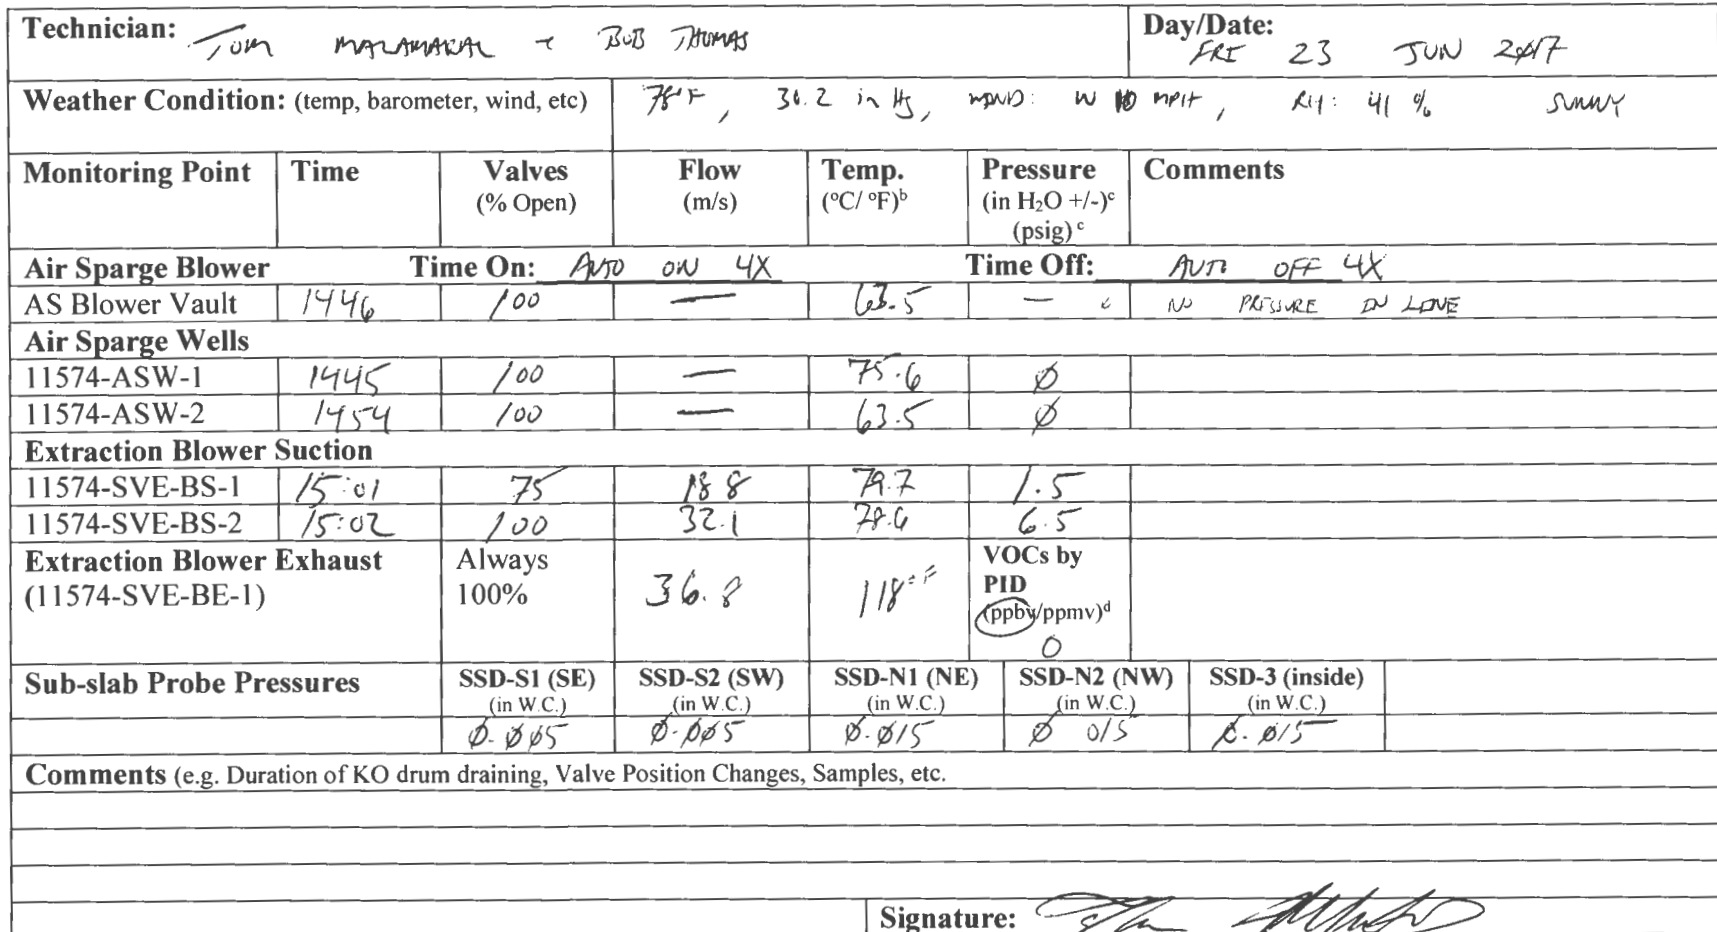 Technician: Tom MALAMAKAL + BOB THOMAS Day/Date: FRI 23 JUN 2017
Weather Condition: (temp, barometer, wind, etc) 78°F, 30.2 in Hg, WIND: W 10 MPH, RH: 41 % SUNNY
Monitoring Point Time Valves Flow Temp. Pressure Comments
(% Open) (m/s) (°C/ °F)b (in H₂O +/-)c
(psig) c
Air Sparge Blower Time On: AUTO ON 4X Time Off: AUTO OFF 4X
AS Blower Vault 1446 100 — 63.5 — NO PRESSURE IN LINE
Air Sparge Wells
11574-ASW-1 1445 100 — 75.6 Ø
11574-ASW-2 1454 100 — 63.5 Ø
Extraction Blower Suction
11574-SVE-BS-1 15:01 75 18.8 79.7 1.5
11574-SVE-BS-2 15:02 100 32.1 78.6 6.5
Extraction Blower Exhaust Always VOCs by
(11574-SVE-BE-1) 100% 36.8 118°F PID
(ppbv/ppmv)d
0
Sub-slab Probe Pressures SSD-S1 (SE) SSD-S2 (SW) SSD-N1 (NE) SSD-N2 (NW) SSD-3 (inside)
(in W.C.) (in W.C.) (in W.C.) (in W.C.) (in W.C.)
Ø.ØØ5 Ø.ØØ5 Ø.Ø15 Ø 015 Ø.Ø15
Comments (e.g. Duration of KO drum draining, Valve Position Changes, Samples, etc.
Signature: